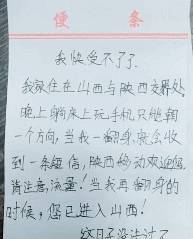 便 条
我快受不了了.
我家住在山西与陕西交界处,
晚上躺床上玩手机只能朝
一个方向,当我一翻身,就会收
到一条短信,陕西移动欢迎您,
请注意流量!当我再翻身的
时候,您已进入山西!
这日子没法过了